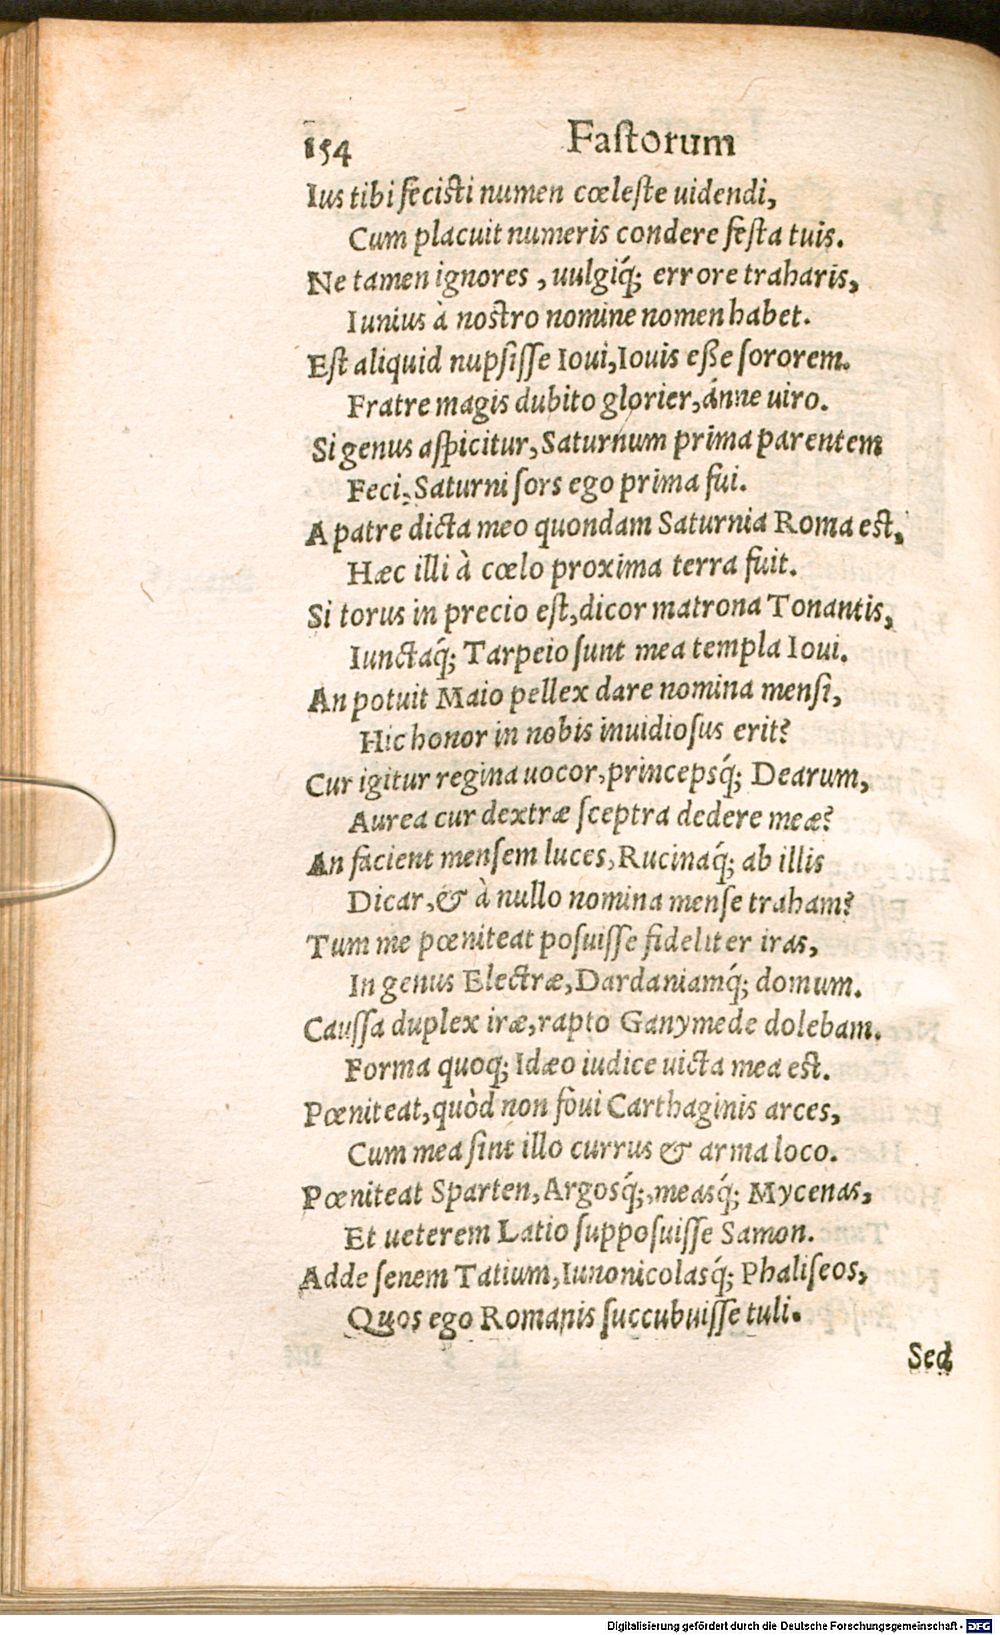 154 Faſtorum
Ius tibi feciſti numen cœleſte uidendi,
Cum placuit numeris condere feſta tuis.
Ne tamen ignores, uulgiq́; errore traharis,
Iunius à noſtro nomine nomen habet.
Eſt aliquid nupſiſſe Ioui, Iouis eße ſororem.
Fratre magis dubito glorier, ánne uiro.
Si genus aſpicitur, Saturnum prima parentem
Feci, Saturni ſors ego prima fui.
A patre dicta meo quondam Saturnia Roma eſt,
Hæc illi à cœlo proxima terra fuit.
Si torus in precio eſt, dicor matrona Tonantis,
Iunctaq́; Tarpeio ſunt mea templa Ioui.
An potuit Maio pellex dare nomina menſi,
Hic honor in nobis inuidioſus erit?
Cur igitur regina uocor, princepsq́; Dearum,
Aurea cur dextræ ſceptra dedere meæ?
An facient menſem luces, Rucinaq́; ab illis
Dicar, & à nullo nomina menſe traham?
Tum me pœniteat poſuiſſe fideliter iras,
In genus Electræ, Dardaniamq́; domum.
Cauſſa duplex iræ, rapto Ganymede dolebam.
Forma quoq; Idæo iudice uicta mea eſt.
Pœniteat, quòd non foui Carthaginis arces,
Cum mea ſint illo currus & arma loco.
Pœniteat Sparten, Argosq́;, measq́; Mycenas,
Et ueterem Latio ſuppoſuiſſe Samon.
Adde ſenem Tatium, Iunonicolasq́; Phaliſcos,
Quos ego Romanis ſuccubuiſſe tuli.
Sed
Digitalisierung gefördert durch die Deutsche Forschungsgemeinschaft - DFG